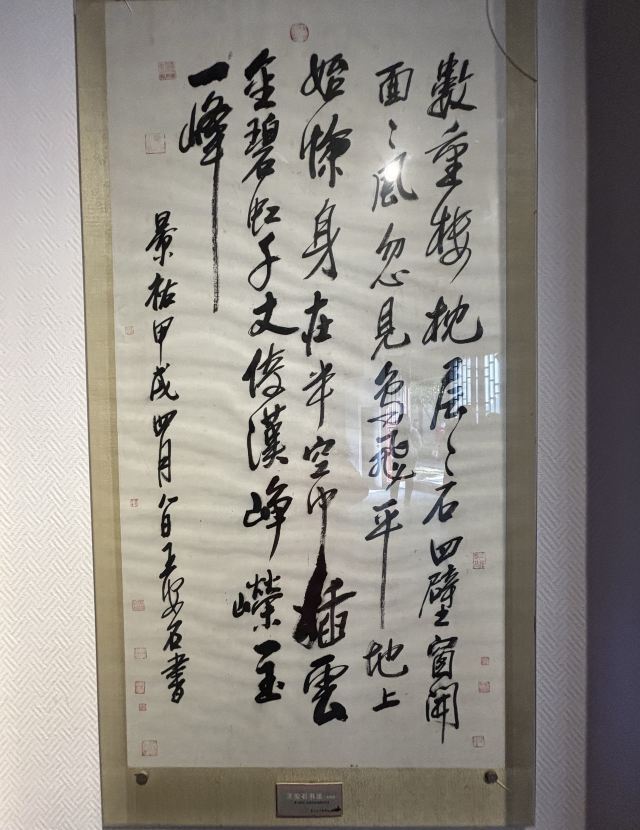 數重樓枕層〻石四壁窗開
面〻風忽見鳥飛平地上
始惊身在半空中插雲
金碧虹千丈倚漢峥嶸玉
一峰
景祜甲戌四月八日王安石書